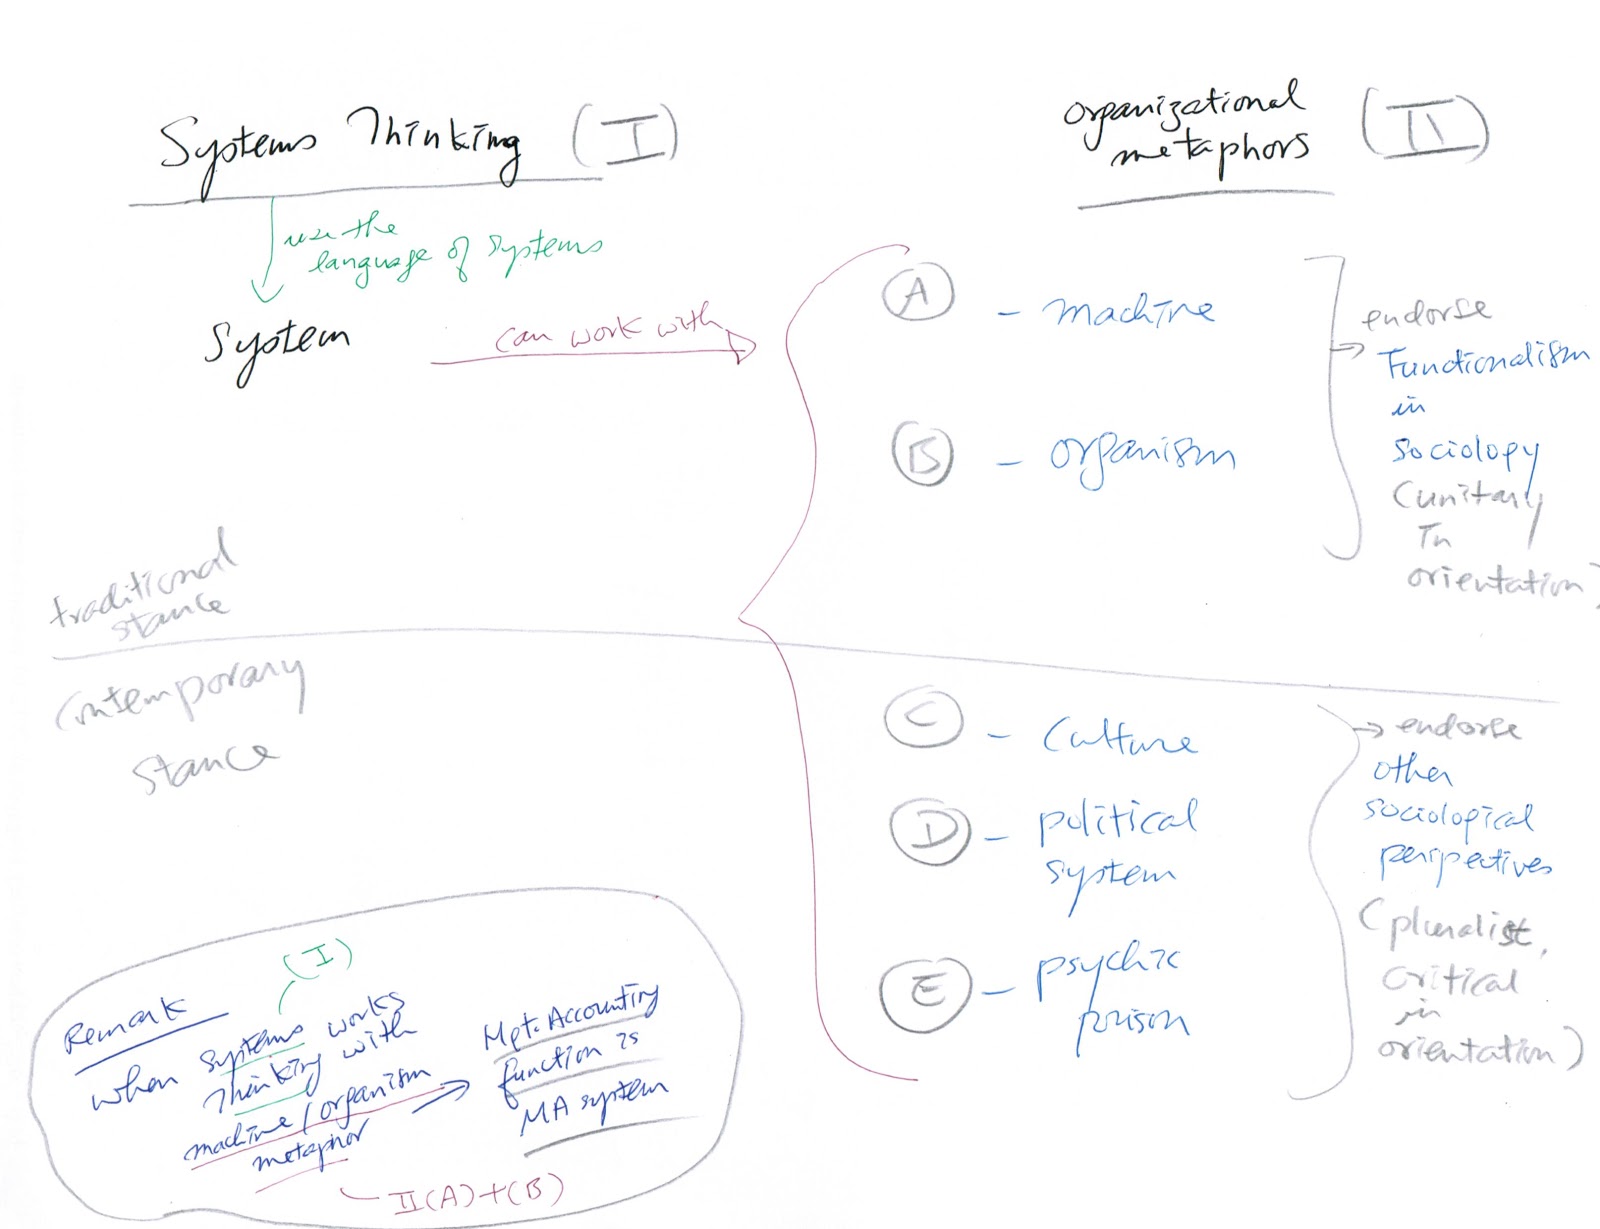 Systems Thinking (I)
use the
language of systems
System
can work with
organizational
metaphors (II)
A - machine
B - organism
endorse
Functionalism
in
sociology
(unitary
in
orientation)
traditional
stance
Contemporary
stance
C - Culture
D - political
system
E - psychic
prison
endorse
other
sociological
perspectives
(pluralist,
critical
in
orientation)
(I)
Remark
when systems works
Thinking with
machine/organism
metaphor
Mgt. Accounting
function is
MA system
II(A)+(B)